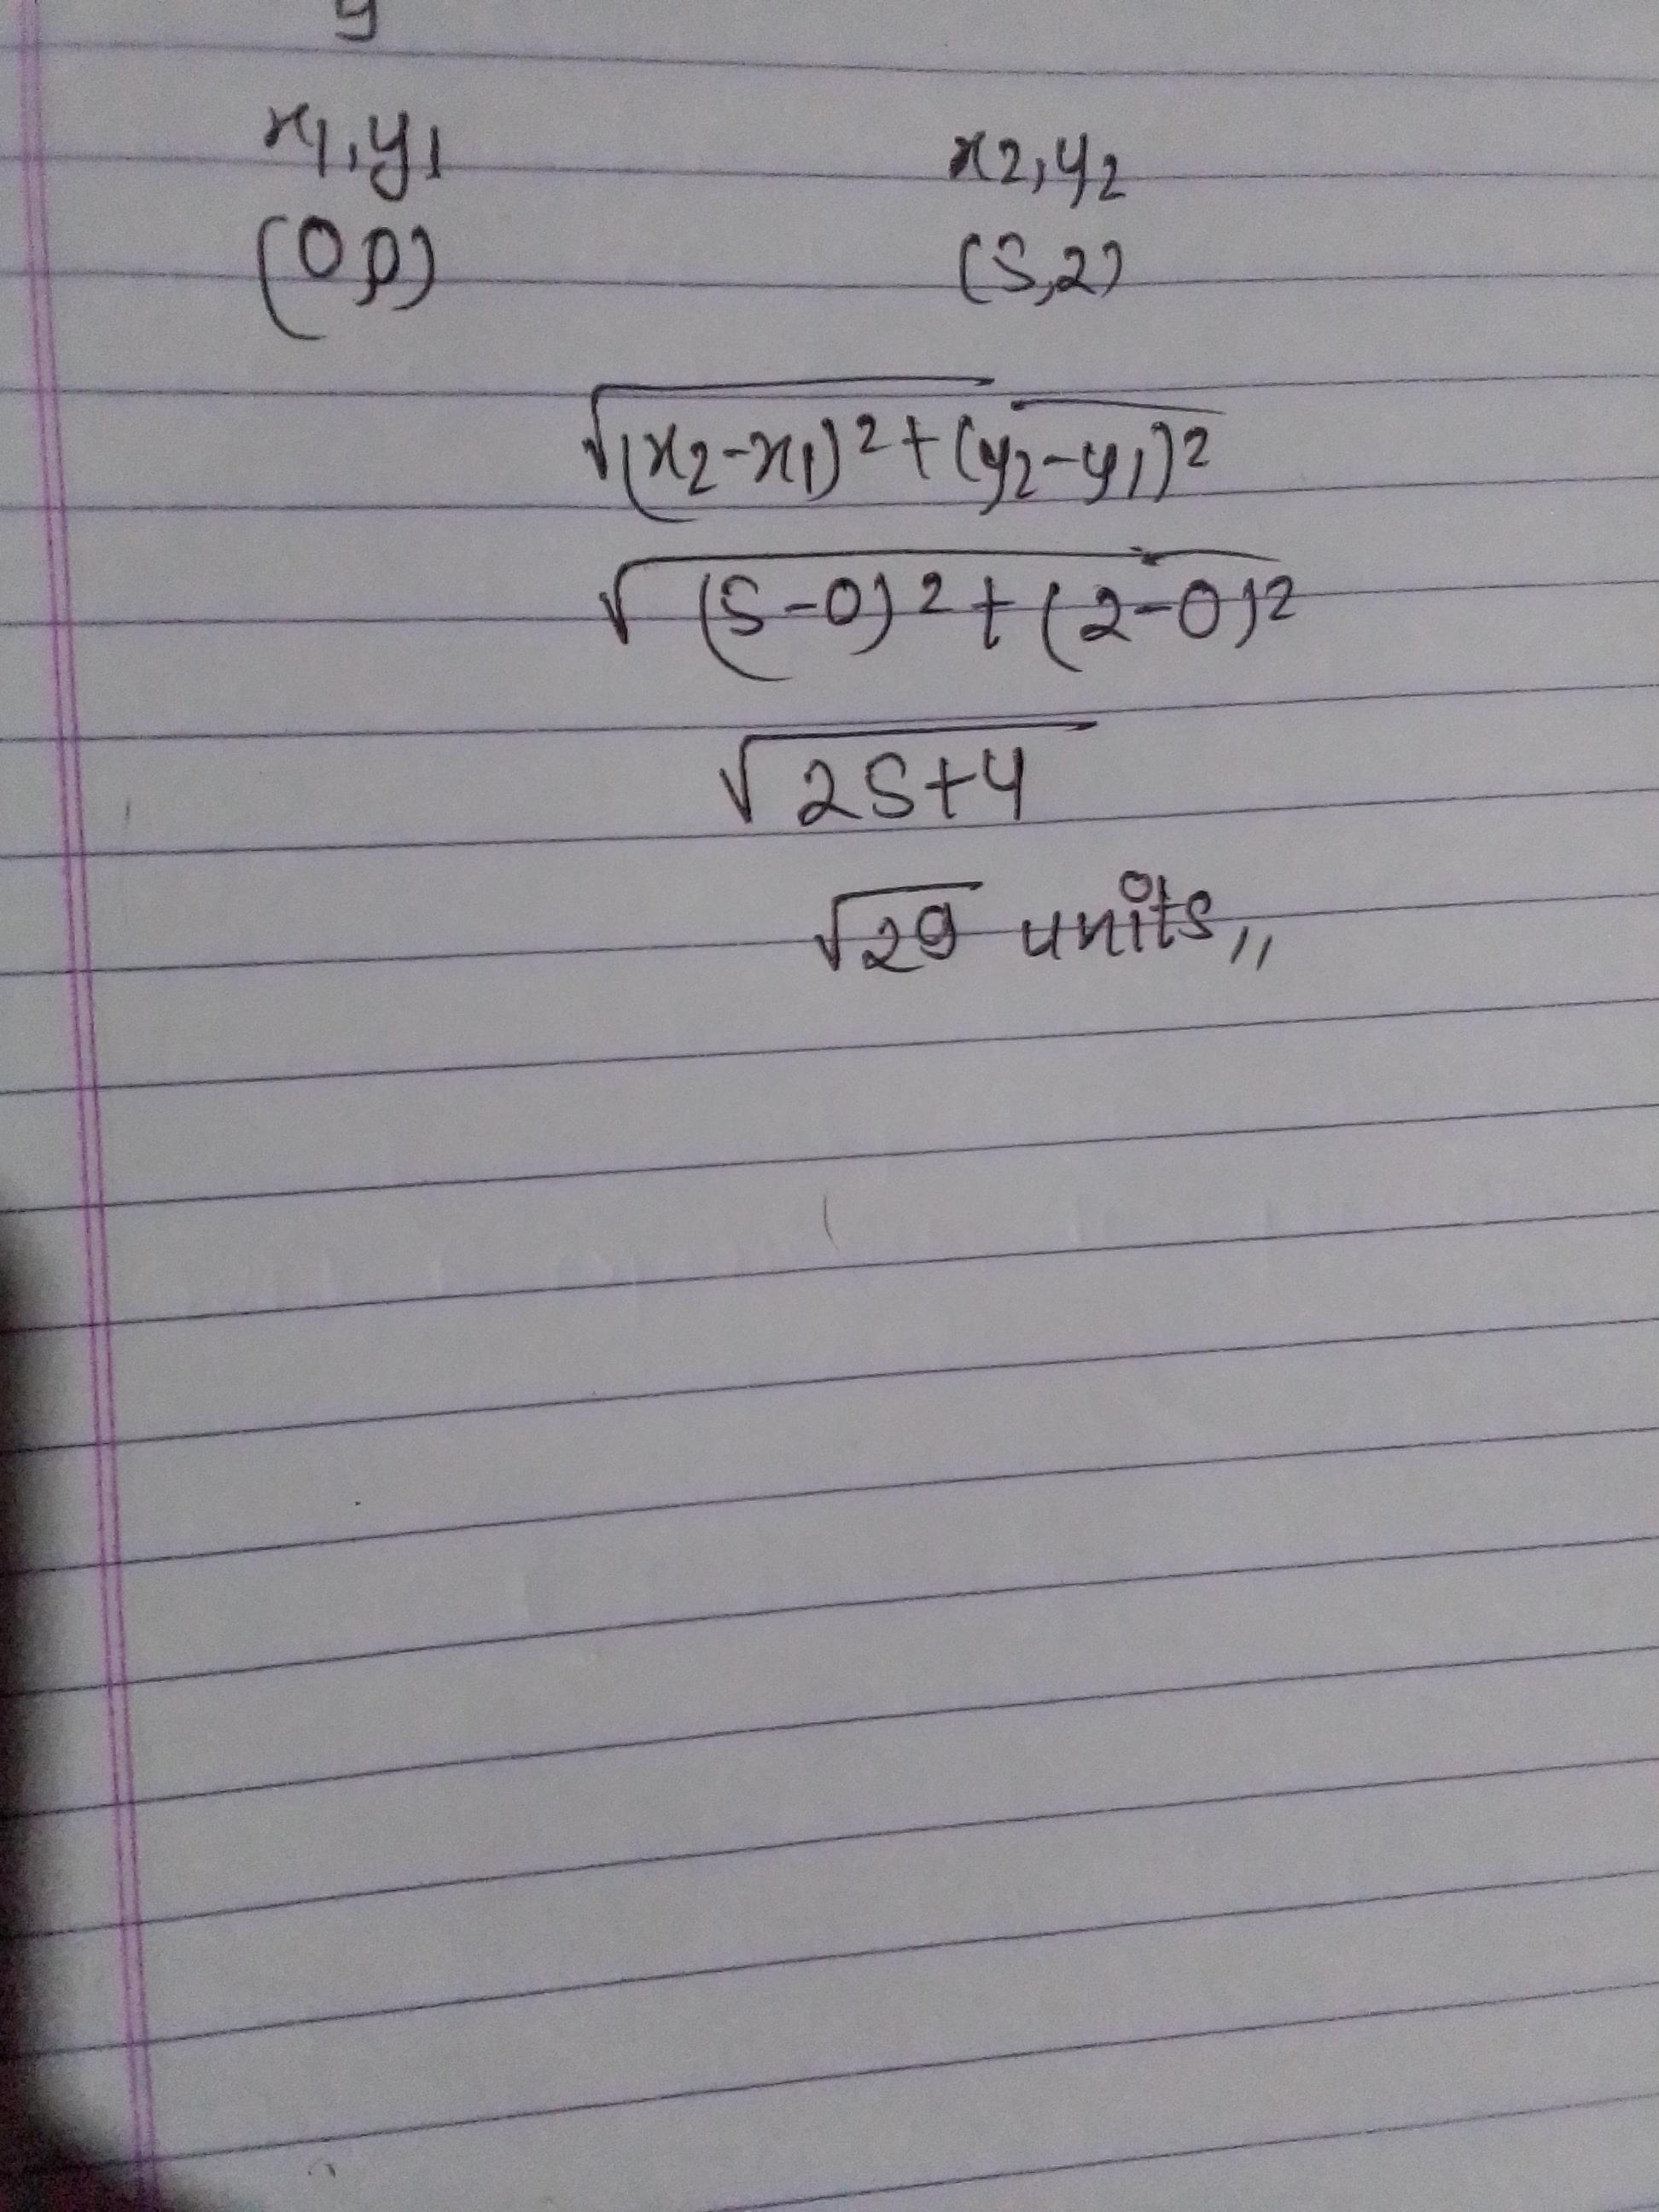 x1,y1 x2,y2
(0,0) (5,2)
√(x2-x1)2+(y2-y1)2
√(5-0)2+(2-0)2
√25+4
√29 units,,